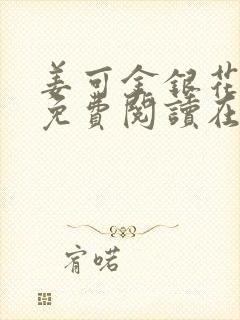 姜可金銀花
免費閱讀在
宥喏